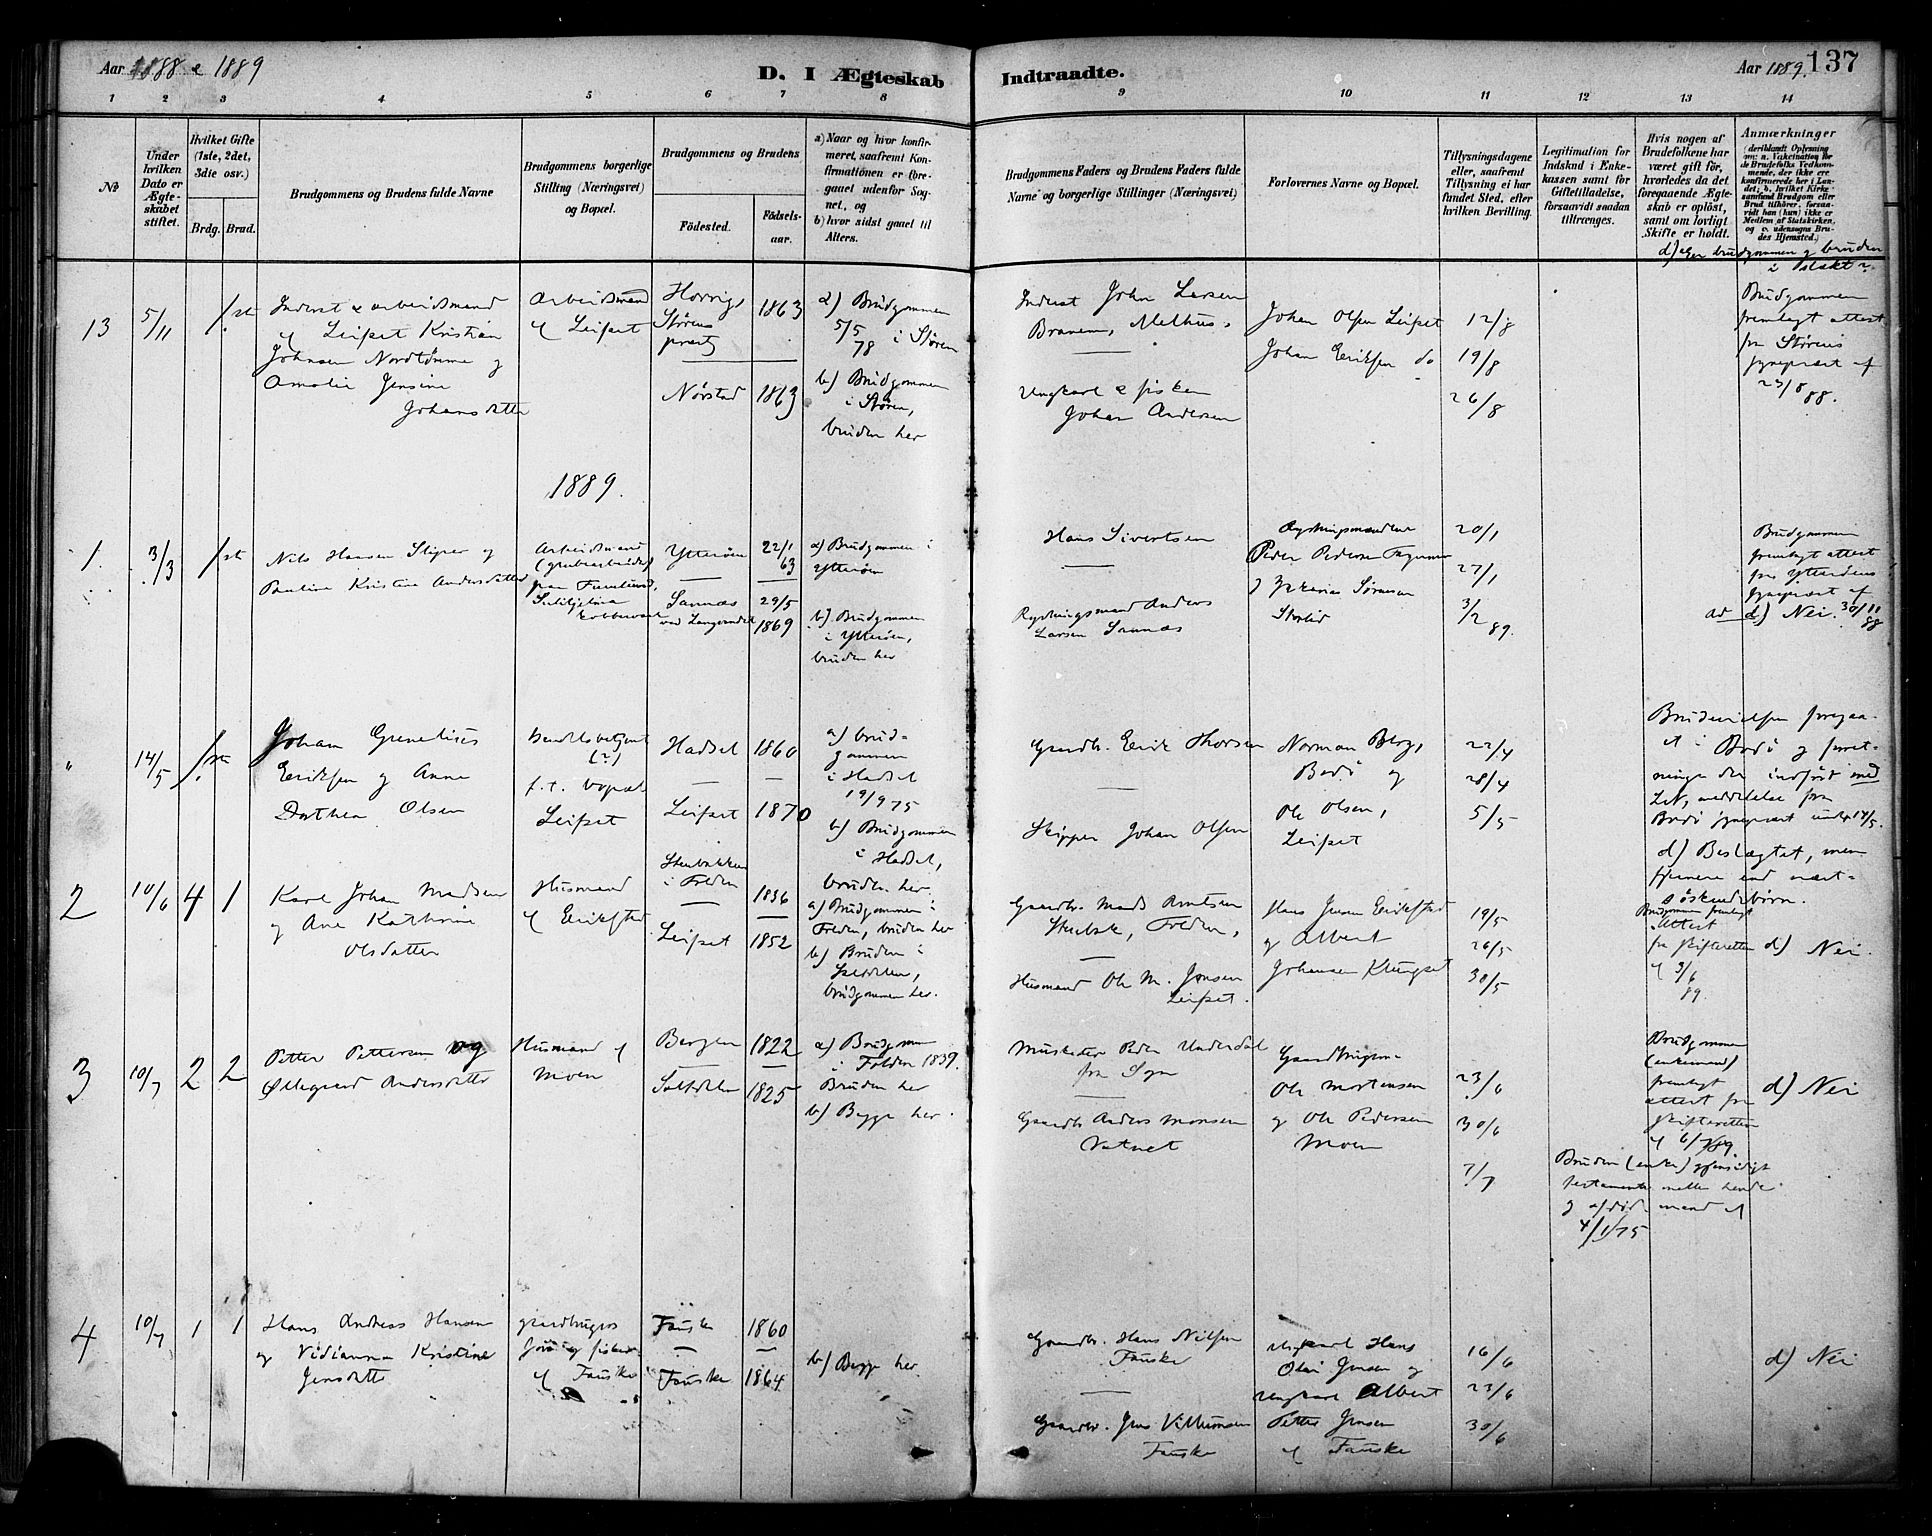 Aar 1888 & 1889
D. I Ægteskab
Indtraadte.
Aar 1889.
137
1 2 3 4 5 6 7 8
9 10 11 12 13 14
No
Under hvilken Dato er Ægteskabet stiftet.
Hvilket Gifte (1ste, 2det, 3die osv.)
Brdg. Brud.
Brudgommens og Brudens fulde Navne
Brudgommens borgerlige Stilling (Næringsvei) og Bopæl.
Brudgommens og Brudens
Födested.
Födselsaar.
a) Naar og hvor konfirmeret, saafremt Konfirmationen er foregaaet udenfor Sognet, og
b) hvor sidst gaaet til Alters.
Brudgommens Faders og Brudens Faders fulde Navne og borgerlige Stillinger (Næringsvei)
Forlovernes Navne og Bopæl.
Tillysningsdagene eller, saafremt Tillysning ei har fundet Sted, efter hvilken Bevilling.
Legitimation for Indskud i Enkekassen samt for Giftetilladelse, forsaavidt saadan tiltrænges.
Hvis nogen af Brudefolkene har været gift för, hvorledes da det foregaaende Ægteskab er oplöst, samt om lovligt Skifte er holdt.
Anmærkninger
d) Er brudgommen og bruden
i slækt?
13
5/11
1st
Inderst & arbeidsmand
af Leifset Kristian
Johnsen Nordtømme og
Amalie Jensine
Johansdatter
Arbeidsmand
af Leifset
Horrigs
Størens
præstg
1863
Nørstad 1863
a) Brudgommen
5/5 78 i Støren
b) Brudgommen
i Støren,
bruden her
Inderst John Larsen
Branem, Melhus.
Ungkarl & fisker
Johan Andersen
Johan Olsen Leifset
Johan Eriksen do
12/8
19/8
26/8
Brudgommen
fremlagt attest
fra Størens
sognepræst af
23/8 88.
1889.
1.
3/3
1st
Nils Hansen Sliper og
Pauline Kristine Andersdatter
Arbeidsmand
(grubearbeider)
paa Furulund,
Sulitjelma
kobberværk
Ytterøen 22/1 63
Sannæs
ved Langvandet
29/5 1869
a) Brudgommen i
Ytterøen
b) Brudgommen
i Ytterøen,
bruden her
Hans Sivertsen
Rydningsmand Anders
Larsen Sannæs
Rydningsmændene
Peder Pedersen Fagermo
og Zakarias Sørensen
Storlid
20/1
27/1
3/2 89.
Brudgommen
fremlagt attest
fra Ytterøens
sognepræst af
30/11 88
ad d) Nei.
"
14/5
1ste
Johan Grenelius
Eriksen og Anne
Dorthea Olsen
Handelsbetjent
(?)
f. t. bopæl
Leifset
Hadsel 1860
Leifset 1870
a) brudgommen
i Hadsel
19/9 75
b) Brudgommen
i Hadsel,
bruden her.
Gaardbr. Erik Thorsen
Skipper Johan Olsen
Norman Berg,
Bodø og
Ole Olsen,
Leifset
22/4
28/4
5/5
Brudevielsen foregaaet
i Bodø og forretningen
der indført med
No, meddelelse fra
Bodø sognepræst under 14/5.
d) Beslægtet, men
fjernere end nært-
søskendebørn.
2
10/6
4 1
Karl Johan Madsen
og Ane Kathrine
Olsdatter
Husmand
af Erikstad
Stenbakken
i Folden
1836
Leifset 1852
a) Brudgommen i
Folden, bruden her
b) Bruden i
Skjerstad,
brudgommen her.
Gaardbr. Mads Arntsen
Stenbak, Folden,
Husmand Ole M. Jensen
Leifset.
Hans Jensen Erikstad
og Albert
Johansen Klungset
19/5
26/5
30/5
Brudgommen fremlagt
Attest
fra skifteretten
af 3/6 89.
d) Nei.
3
10/7
2 2
Petter Pettersen og
Ollegaard Andersdatter
Husmand af
Moen
Bergen 1822
Saltdalen 1825
a) Brudgommen
i Folden 1839.
Bruden her
b) Begge her.
Musketer Peder Underdal
fra Sogn
Gaardbr. Anders Monsen
Vatnet
Gaardbrugerne
Ole Mortensen
og Ole Pedersen
Moen
23/6
30/6
7/7
Brudgommen
(enkemand)
fremlagt
attest fra
skifteretten
af 6/7 89.
d) Nei
Bruden (enke) gjensidigt
testamente mellem hende
og afdøde mand af
4/1/75
4
10/7
1 1
Hans Andreas Hansen
og Vidianna Kristine
Jensdatter
gaardbrugersøn
og fisker
af Fauske
Fauske 1860
Fauske 1864
b) Begge her.
Gaardbr. Hans Nilsen
Fauske
Gaardbr. Jens Villumsen
Fauske
Ungkarl Hans
Olai Jensen og
Ungkarl Albert
Petter Jensen
af Fauske
16/6
23/6
30/6
d) Nei